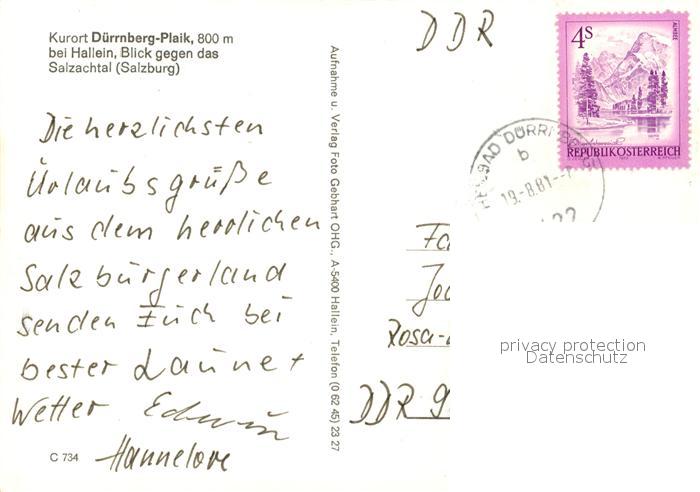 Kurort Dürrnberg-Plaik, 800 m
bei Hallein, Blick gegen das
Salzachtal (Salzburg)
Die herzlichsten
Urlaubsgrüße
aus dem herrlichen
Salzburgerland
senden Euch bei
bester Laune +
Wetter Edwin
Hannelore
C 734
Aufnahme u. Verlag Foto Gebhart OHG., A-5400 Hallein, Telefon (0 62 45) 23 27
DDR
4S
ALMSEE
REPUBLIK ÖSTERREICH
BAD DÜRRNB
b
19.-8.81.-
Fa
Jo
Rosa-
DDR 9
privacy protection
Datenschutz